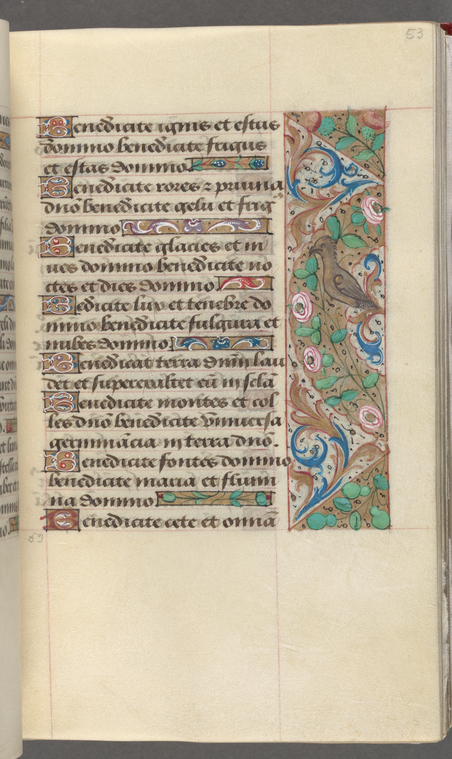 53
Benedicite ignis et estus
domino benedicite frigus
et estas domino
Benedicite rores z pruina
dño benedicite gelu et frig
domino
Benedicite glacies et ni
ues domino benedicite no
ctes et dies domino
Bedicite lux et tenebre do
mino benedicite fulgura et
nubes domino
Benedicat terra dnm lau
det et superexaltet eū in scla
Benedicite montes et col
les dño benedicite vniuersa
germinācia in terra dño.
Benedicite fontes domino
benedicite maria et flumi
na domino
Benedicite cete et omnia